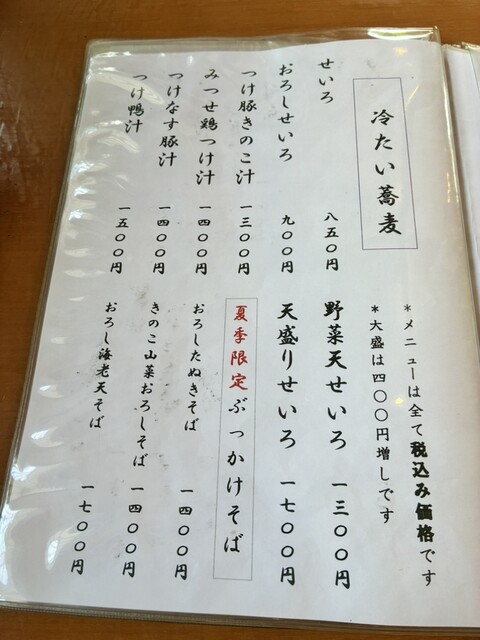 冷たい蕎麦
せいろ 八五〇円
おろしせいろ 九〇〇円
つけ豚きのこ汁 一三〇〇円
みつせ鶏つけ汁 一四〇〇円
つけなす豚汁 一四〇〇円
つけ鴨汁 一五〇〇円
*メニューは全て税込み価格です
*大盛は四〇〇円増しです
野菜天せいろ 一三〇〇円
天盛りせいろ 一七〇〇円
夏季限定ぶっかけそば
おろしたぬきそば 一四〇〇円
きのこ山菜おろしそば 一四〇〇円
おろし海老天そば 一七〇〇円